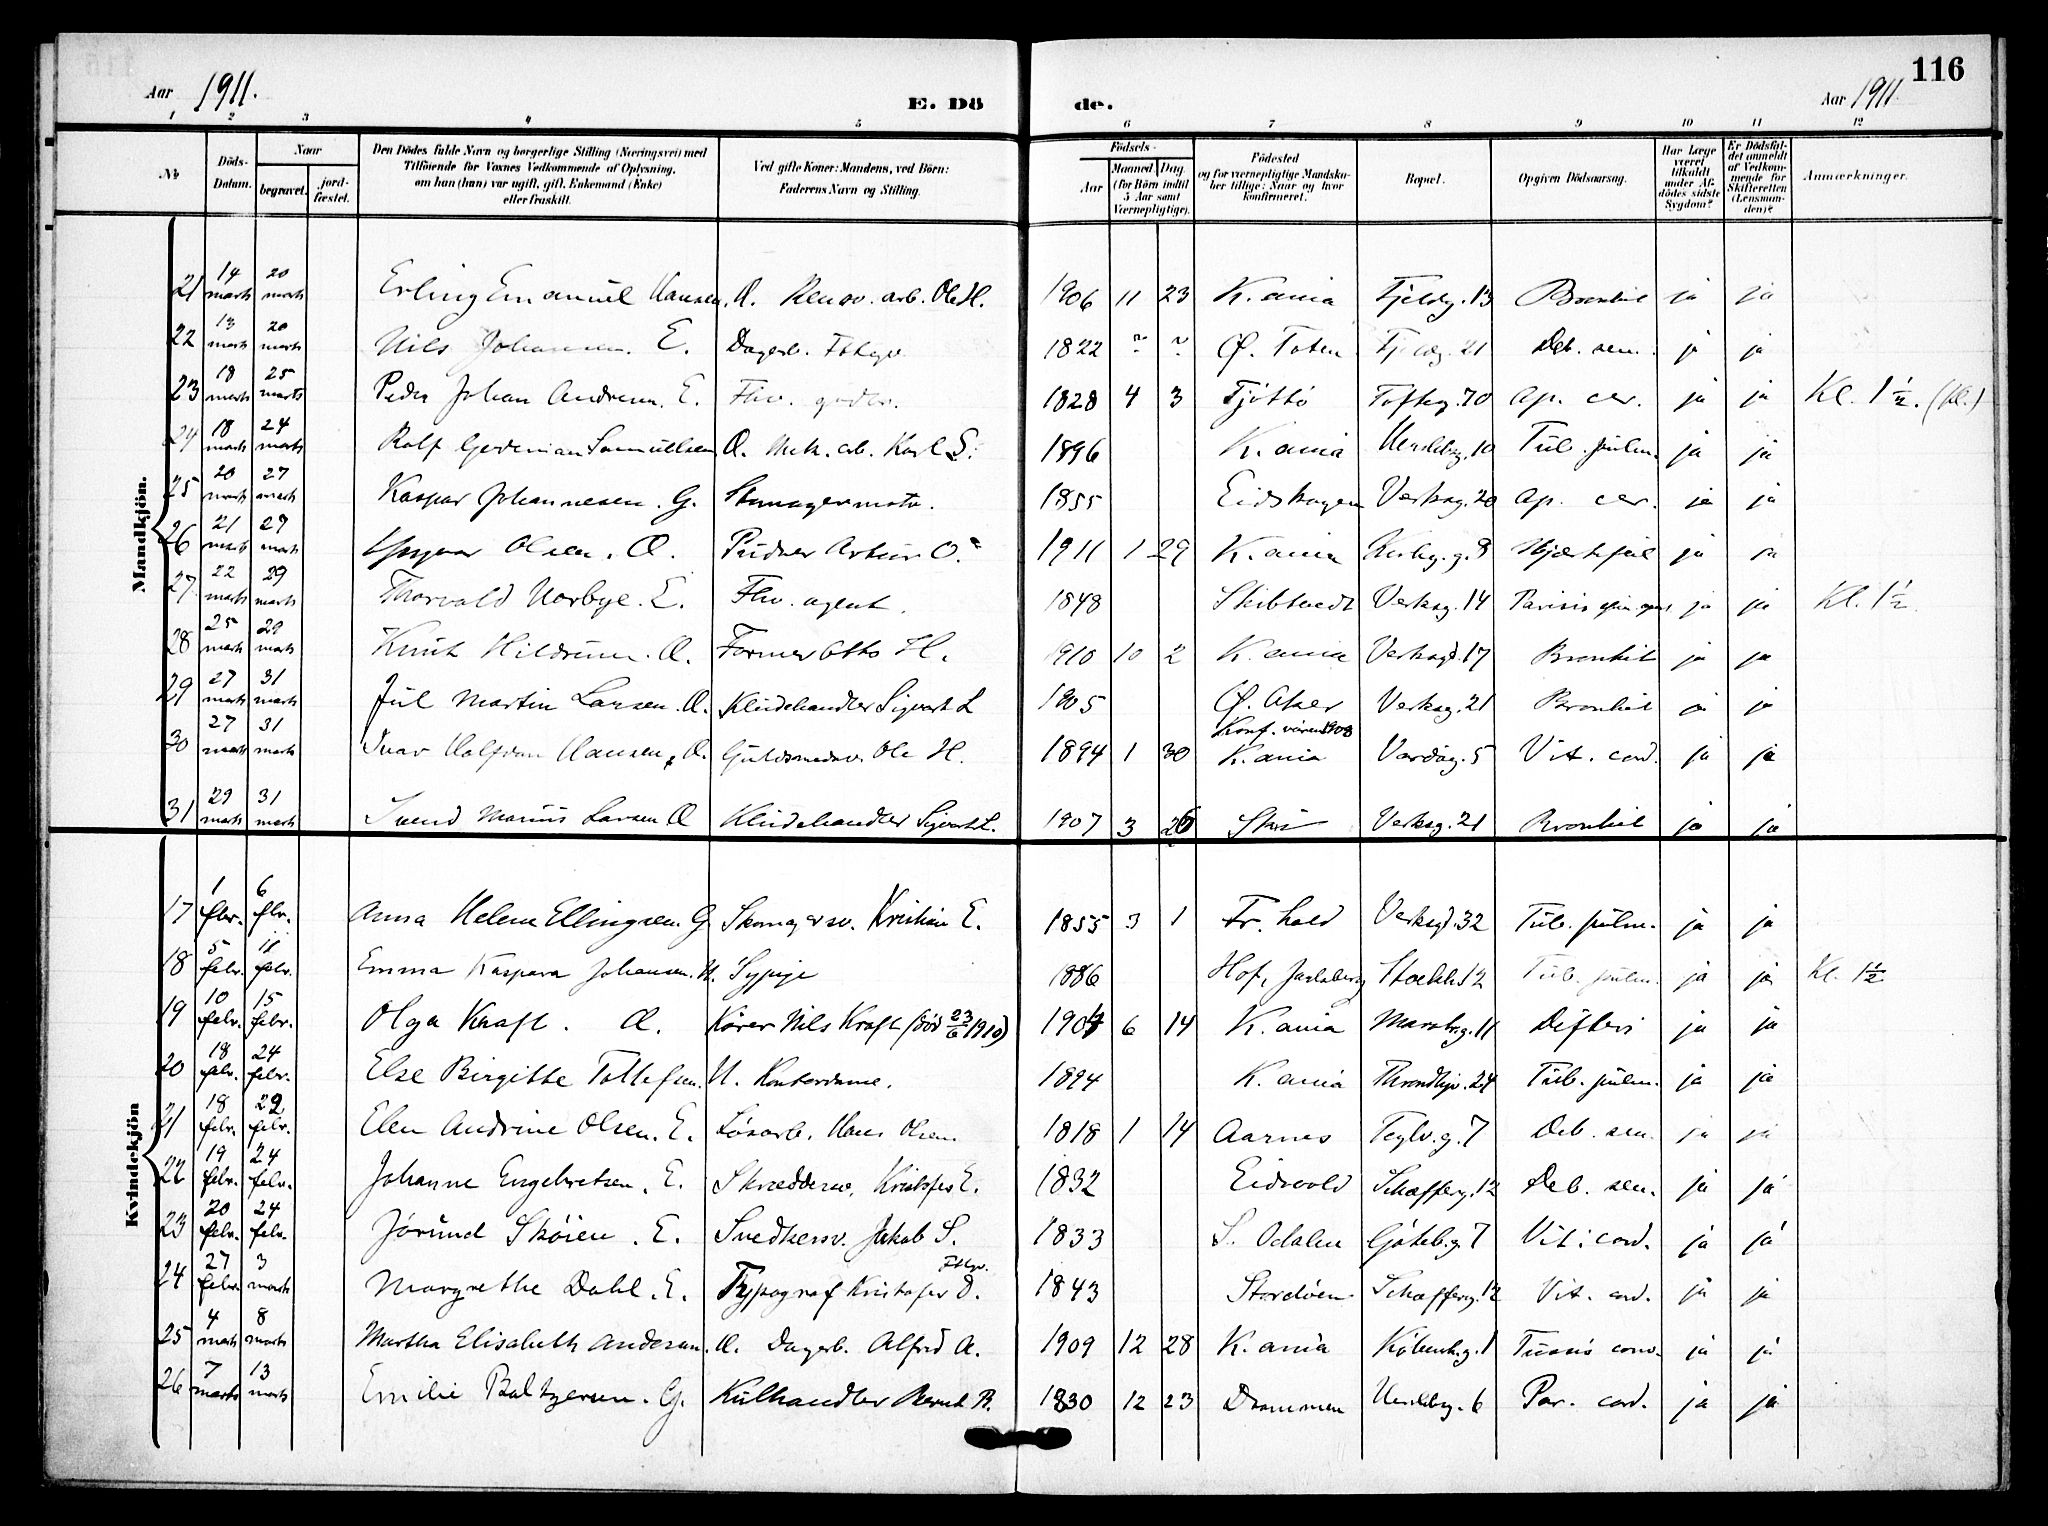 116
Aar 1911.
E. Dö
de.
Aar 1911.
1 2 3 4 5 6 7 8 9 10 11 12
No
Döds-Datum.
Naar
begravet. jord-fæstet.
Den Dödes fulde Navn og borgerlige Stilling (Næringsvei) med
Tilföiende for Voxnes Vedkommende af Oplysning,
om han (hun) var ugift, gift, Enkemand (Enke)
eller fraskilt.
Ved gifte Koner: Mandens, ved Börn:
Faderens Navn og Stilling.
Födsels-
Aar Maaned Dag
(for Börn indtil
5 Aar samt
Værnepligtige).
Födested
og for værnepligtige Mandska-
ber tillige: Naar og hvor
konfirmeret.
Bopæl.
Opgiven Dödsaarsag.
Har Læge
været
tilkaldt
under Af-
dödes sidste
Sygdom?
Er Dödsfal-
det anmeldt
af Vedkom-
mende for
Skifteretten
(Lensman-
den)?
Anmærkninger.
Mandkjön.
21 14 marts 20 marts Erling Emanuel Hansen. U. Rensv. arb. Ole H. 1906 11 23 K.ania Fjeldg. 13 Bronkit ja ja
22 13 marts 20 marts Nils Johansen. E. Dagarb. Fthgv. 1822 ? ? Ø. Toten Fjeldg. 21 Deb. sen. ja ja
23 18 marts 25 marts Peder Johan Andresen. E. Fhv. 1828 4 3 Tjøttø Tøftsg. 70 Ap. cer. ja ja Kl. 1 1/2. (Kl.)
24 18 marts 24 marts Rolf Samuelsen U. Mek. arb. Karl S. 1896 K.ania 10 Tub. pulm. ja ja
25 20 marts 27 marts Kaspar Johannesen. G. Skomagermstr. 1855 Eidskogen Verksg. 20 Ap. cer. ja ja
26 21 marts 27 marts Olsen. U. Pudser Artur O. 1911 1 29 K.ania 8 Hjærtefeil ja ja
27 22 marts 29 marts Thorvald Norbye. E. Fhv. agent. 1848 Skibtvedt Verksg. 14 ja ja Kl. 1 1/2.
28 25 marts 29 marts Knut Hildrum. U. Former Otto H. 1910 10 2 K.ania Verksg. 17 Bronkit ja ja
29 27 marts 31 marts Jul Martin Larsen. U. Kludehandler Sigvart L 1905 Ø. Aker Verksg. 21 Bronkit ja ja
Konf. våren 1908
30 27 marts 31 marts Ivar Halfdan Hansen. U. Guldsmedsv. Ole H. 1894 1 30 K.ania Vardøg. 5 Vit. cord. ja ja
31 29 marts 31 marts Svend Marius Larsen U Kludehandler Sigvart L. 1907 3 26 Ski Verksg. 21 Bronkit ja ja
Kvindekjön
17 1 febr. 6 febr. Anna Helene Ellingsen. G Skomagersv. Kristian E. 1855 3 1 Fr. hald Verksg. 32 Tub. pulm. ja ja
18 5 febr. 11 febr. Emma Kaspara Johansen. U. Sypige 1886 Hof, Jarlsberg Stockh. 12 Tub. pulm. ja ja Kl. 1 1/2
19 10 febr. 15 febr. Olga Kraft. U. Kører Nils Kraft (død 23/6 1910) 1904 6 14 K.ania 11 Difteri ja ja
20 18 febr. 24 febr. Else Birgitte Tollefsen. U. Kontordame. 1894 K.ania Throndhjv. 24 Tub. pulm. ja ja
21 18 febr. 22 febr. Elen Andrine Olsen. E. Løsarb. Hans Olsen. 1818 1 14 Aarnes Teglv. g. 7 Deb. sen. ja ja
22 19 febr. 24 febr. Johanne Engebretsen. E. Skræddersv. Kristofer E. 1832 Eidsvold Schæfferg. 12 Deb. sen. ja ja
23 20 febr. 24 febr. Jørund Skøien. E. Snedkersv. Jakob S. 1833 S. Odalen Gøteb. g. 7 Vit. cord. ja ja
24 27 febr. 3 marts Margrethe Dahl. E. Typograf Kristofer D. Fthgv. 1843 Stordøen Schæfferg. 12 Vit. cord. ja ja
25 4 marts 8 marts Martha Elisabeth Andersen. U. Dagarb. Alfred A. 1909 12 28 K.ania Københ. g. 1 Tussis conv. ja ja
26 7 marts 13 marts Emilie Baltzersen. G. Kulhandler Bernt B. 1830 12 23 Drammen 6 Par. cord. ja ja